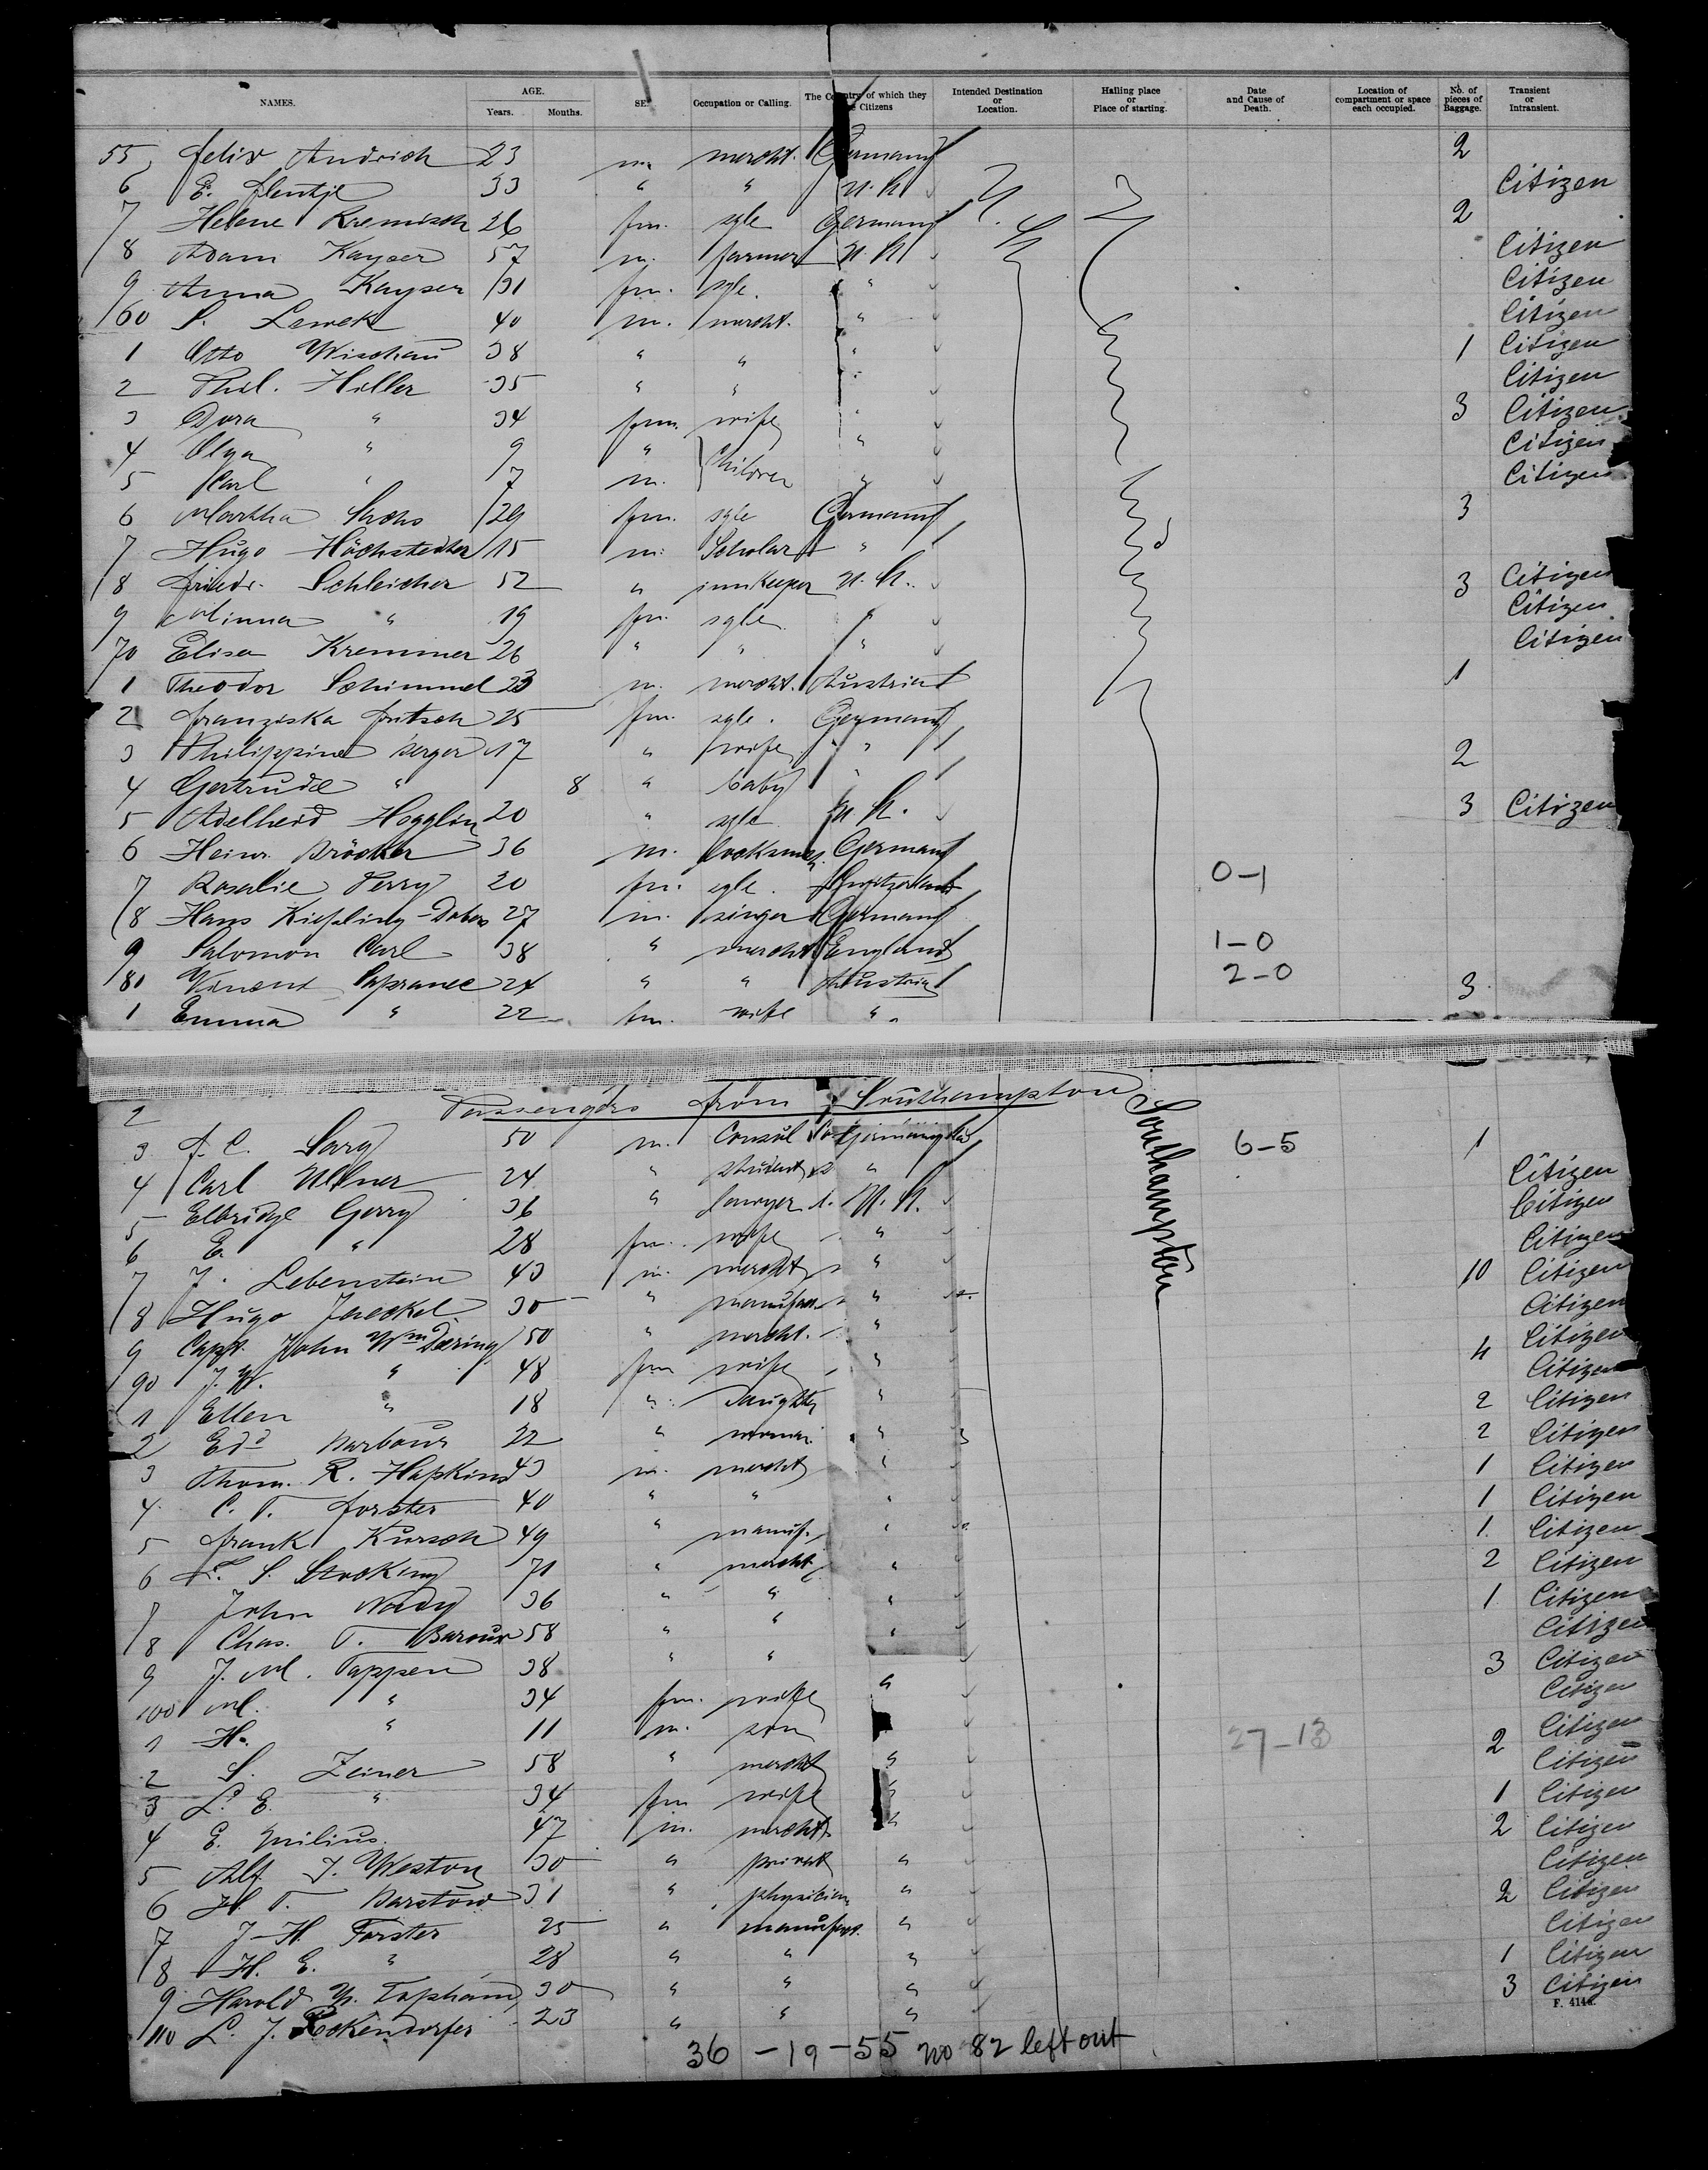 NAMES. AGE. Years. Months. SEX Occupation or Calling. The Country of which they are Citizens Intended Destination or Location. Halling place or Place of starting. Date and Cause of Death. Location of compartment or space each occupied. No. of pieces of Baggage. Transient or Intransient.
55 Felix Andrich 23 m. mercht. Germany 2
6 E. Flentje 33 " " U.St. Citizen
7 Helene Kremisch 26 fm. sgle Germany 2
8 Adam Kayser 57 m. farmer U.St. Citizen
9 Anna Kayser 31 fm. sgle. " Citizen
60 S. Lewek 40 m. mercht. " Citizen
1 Otto Wischau 38 " " " 1 Citizen
2 Phil. Hiller 35 " " " Citizen
3 Dora " 34 fem. wife " 3 Citizen
4 Olga " 9 " Children " Citizen
5 Carl " 7 m. " Citizen
6 Martha Sachs 29 fm. sgle Germany 3
7 Hugo Höchstedter 15 m. Scholar "
8 Friedr. Schleicher 52 " innkeeper U.St. 3 Citizen
9 Minna " 19 fm. sgle " Citizen
70 Elise Kremmer 26 " " " Citizen
1 Theodor Schimmel 23 m. mercht. Austria 1
2 Franziska Fritsch 25 fm. sgle. Germany
3 Philippine Berger 17 " wife " 2
4 Gertrude " 8 " baby "
5 Adelheid Hogglin 20 " sgle U.St. 3 Citizen
6 Heinr. Bröcker 36 m. Germany
7 Rosalie Perry 20 fm. sgle. Switzerland 0-1
8 Hans Kiessling 27 m. singer Germany
9 Salomon Carl 38 " mercht England 1-0
80 Vincent Sapranec 24 " " Austria 2-0 3
1 Emma " 22 fm. wife "
2 Passengers from Southampton
3 F. C. Sarg 50 m. Consul Germany 6-5 1
4 Carl Ullner 24 " student " Citizen
5 Elbridge Gerry 36 " lawyer U.St. Citizen
6 E. " 28 fm. wife " Citizen
7 J. Lebenstein 43 m. mercht " 10 Citizen
8 Hugo Jaeckel 30 " manufact " Citizen
9 Capt. John Wm Deering 50 " mercht. " 4 Citizen
90 J. W. " 48 fm wife " Citizen
1 Ellen " 18 " daughter " 2 Citizen
2 Edd Barbour 22 " " 2 Citizen
3 Thom. R. Hapkins 43 m. mercht " 1 Citizen
4 C. T. Forster 40 " " " 1 Citizen
5 Frank Kürsch 49 " manuf. " 1 Citizen
6 F. S. Stocking 71 " mercht " 2 Citizen
7 John Nady 36 " " " 1 Citizen
8 Chas. T. Baroux 58 " " " Citizen
9 J. M. Tappen 38 " " 3 Citizen
100 M. " 34 fm. wife " Citizen
1 H. " 11 m. son 27-13 2 Citizen
2 S. Zeiner 58 " mercht " Citizen
3 L. E. " 34 fm wife " 1 Citizen
4 E. Milius. 47 m. mercht " 2 Citizen
5 Alf. J. Weston 30 " privat " Citizen
6 H. T. Barstow 31 " physician " 2 Citizen
7 J. H. Forster 25 " manufact. " Citizen
8 H. E. " 28 " " " 1 Citizen
9 Harold Y. Tapham 30 " " " 3 Citizen
110 L. J. Rockendorfer 23 " " "
Southampton
F. 414a.
36 - 19 - 55 no 82 left out